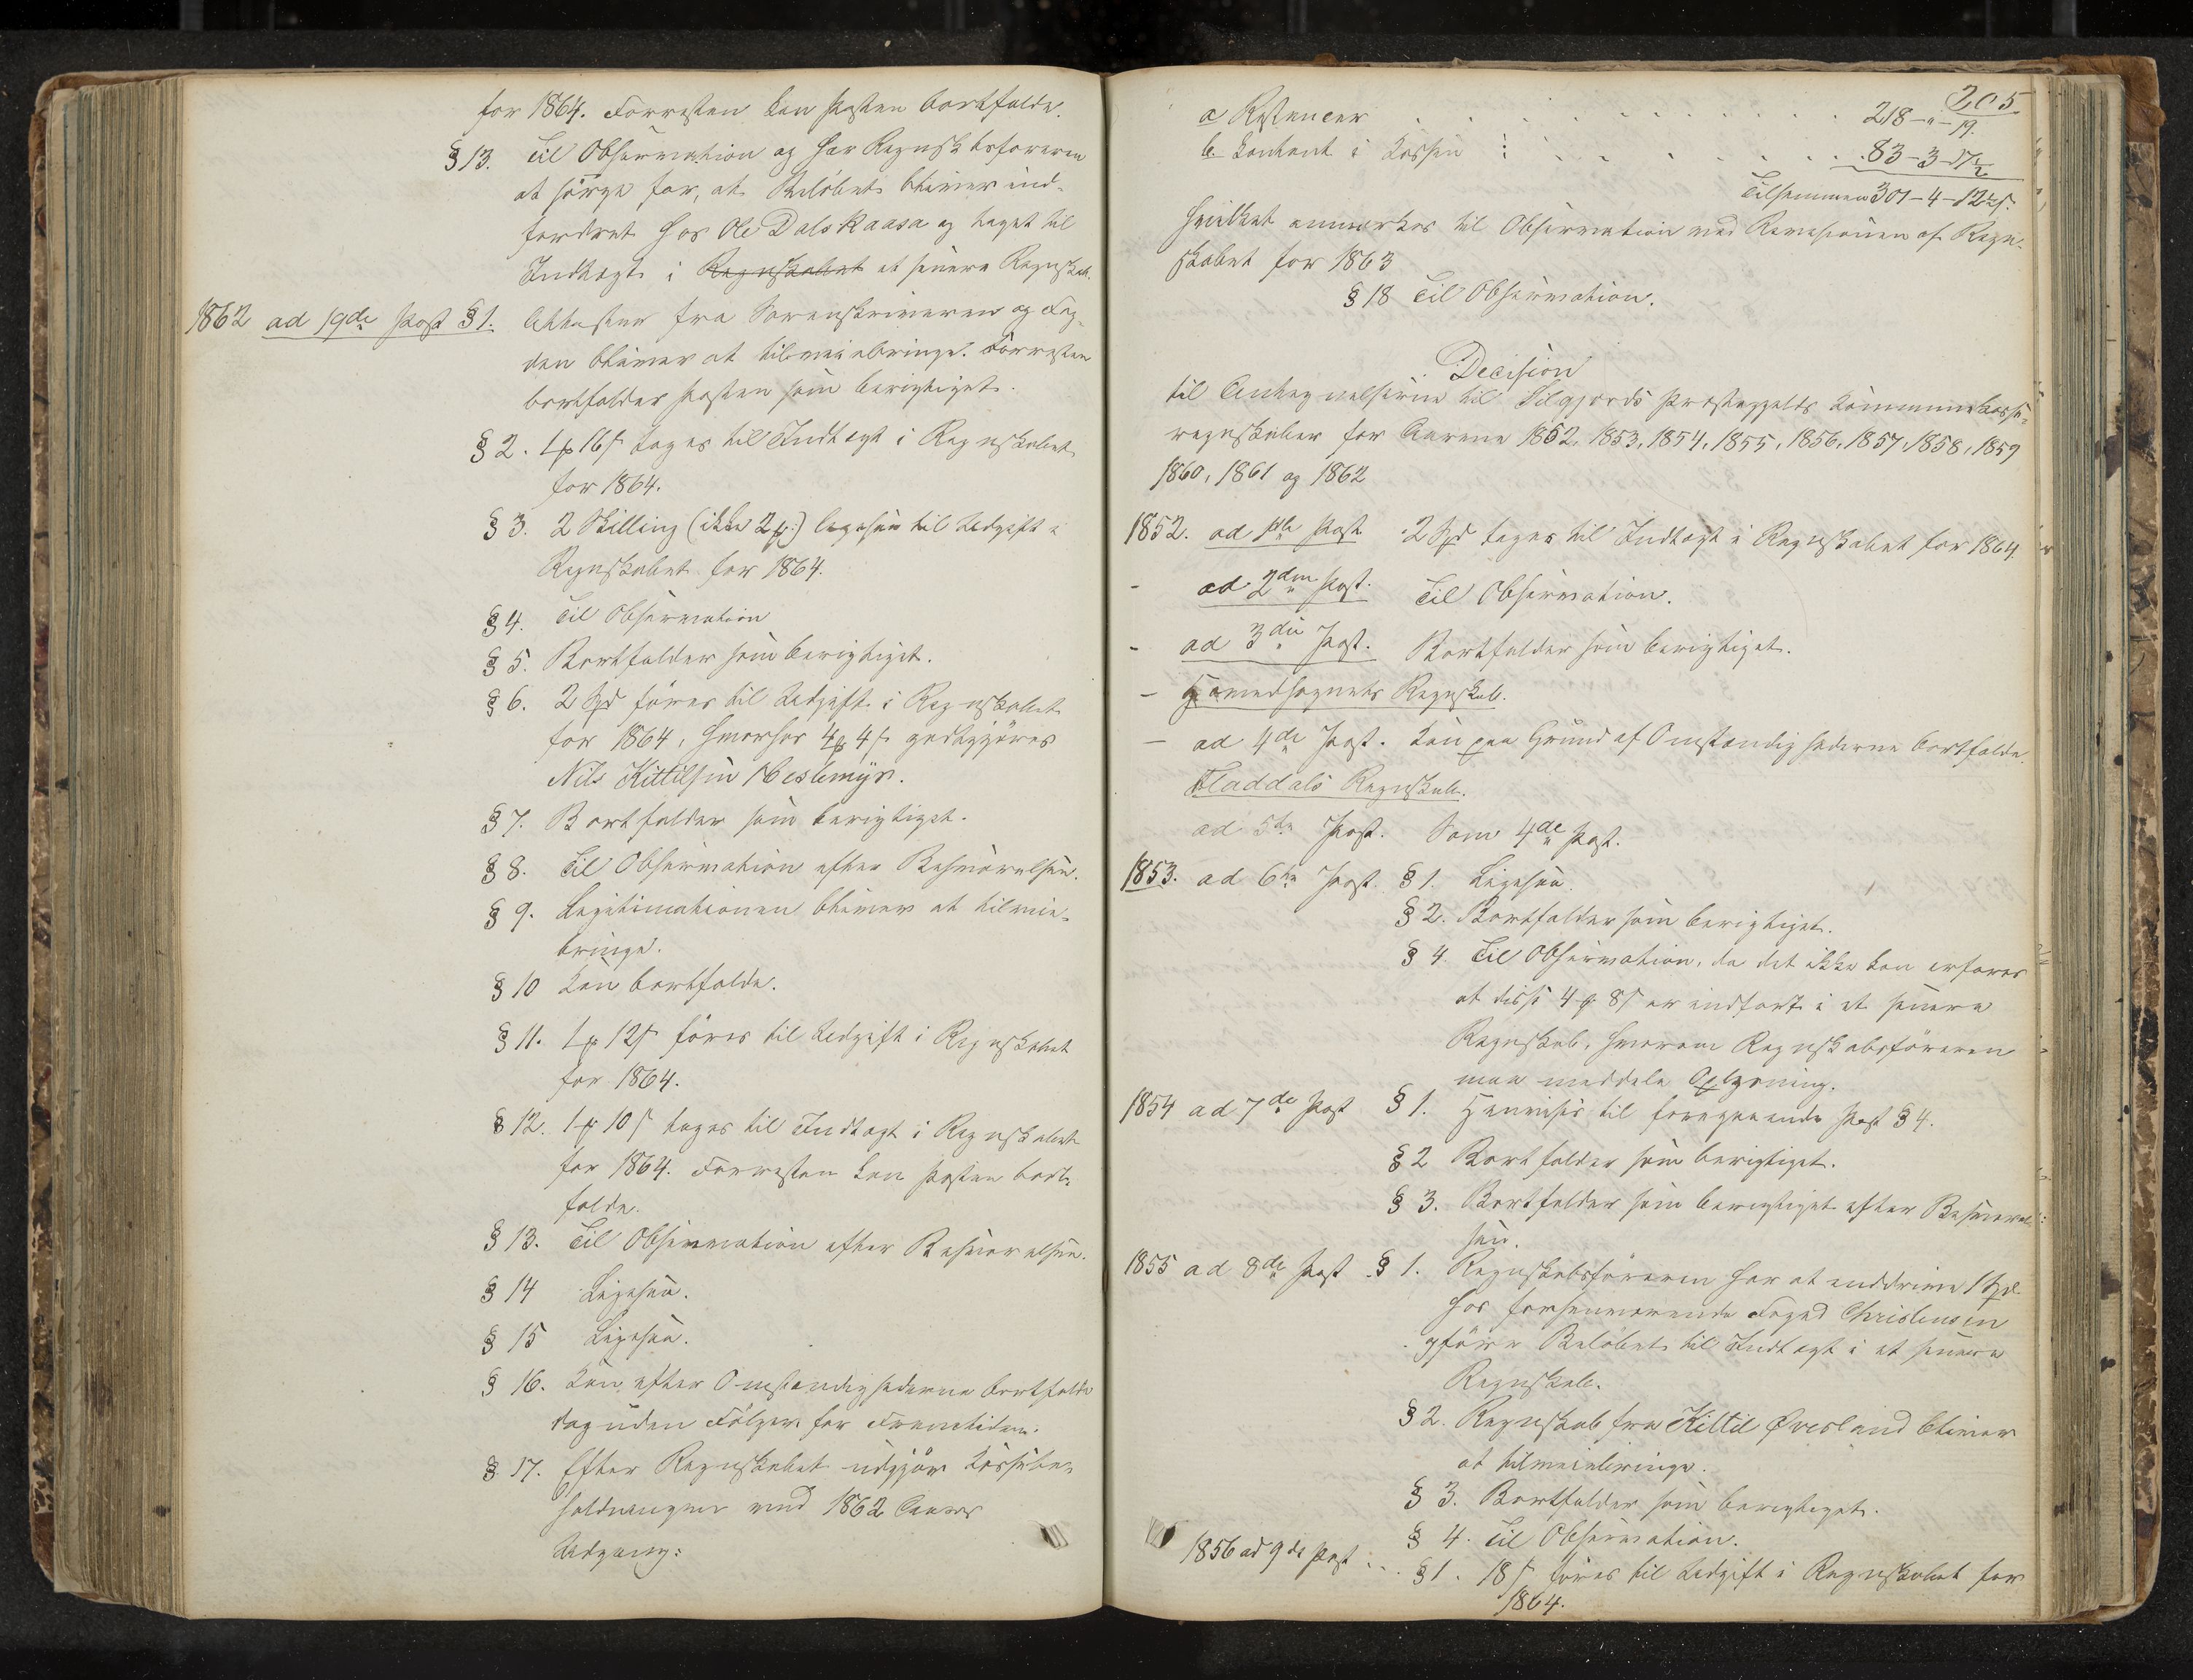 for 1864. Forresten kan Posten bortfalde.
§ 13. Til Observation og har Regnskabsføreren
at sørge for, at Beløbet bliver ind-
fordret hos Ole Dalskaasa og taget til
Indtægt i Regnskabet et senere Regnskab.
1862 ad 19de Post § 1. Attester fra Sorenskriveren og Fog-
den bliver at tilveiebringe. Forresten
bortfalder Posten som berigtiget.
§ 2. 1 ß 16 s tages til Indtægt i Regnskabet
for 1864.
§ 3. 2 Skilling (ikke 2 ß:) ligesaa til Udgift i
Regnskabet for 1864.
§ 4. Til Observation
§ 5. Bortfalder som berigtiget.
§ 6. 2 Spd føres til Udgift i Regnskabet
for 1864, hvorhos 4 ß 4 s godtgjøres
Nils Kittilsen
§ 7. Bortfalder som berigtiget.
§ 8. Til Observation efter Besvarelsen.
§ 9. Legitimationen bliver at tilveie-
bringe.
§ 10 Kan bortfalde.
§ 11. 1 ß 12 s føres til Udgift i Regnskabet
for 1864.
§ 12. 1 ß 10 s tages til Indtægt i Regnskabet
for 1864. Forresten kan Posten bort-
falde.
§ 13. Til Observation efter Besvarelsen.
§ 14 Ligesaa.
§ 15 Ligesaa.
§ 16. Kan efter Omstændighederne bortfalde
dog uden Følger for Fremtiden.
§ 17. Efter Regnskabet udgjør Kassebe-
holdningen ved 1862 Aars
Udgang:
205
a Restancer . . . . . . . . . . 218 - " - 19.
b. Kontant i Kassen : . . . . . . . 83 - 3 - 17½
Tilsammen 301 - 4 - 12½ s.
hvilket anmærkes til Observation ved Revisionen af Regn-
skabet for 1863
§ 18 Til Observation.
Decision
til Antegnelserne til Silgjords Præstegjelds Kommunekasse-
regnskaber for Aarene 1852, 1853, 1854, 1855, 1856, 1857, 1858, 1859
1860, 1861 og 1862
1852. ad 1ste Post. 2 Spd tages til Indtægt i Regnskabet for 1864.
- ad 2den Post. Til Observation.
- ad 3die Post. Bortfalder som berigtiget.
- Hovedsognets Regnskab.
- ad 4de Post. Kan paa Grund af Omstændighederne bortfalde.
Fladdals Regnskab.
ad 5te Post. Som 4de Post.
1853. ad 6te Post. § 1. Ligesaa.
§ 2. Bortfalder som berigtiget.
§ 4. Til Observation, da det ikke kan erfares
at disse 4 ß 8 s er indført i et senere
Regnskab, hvorom Regnskabsføreren
maa meddele Oplysning.
1854 ad 7de Post § 1. Henvises til foregaaende Post § 4.
§ 2 Bortfalder som berigtiget.
§ 3. Bortfalder som berigtiget efter Besvarel-
sen.
1855 ad 8de Post § 1. Regnskabsføreren har at inddrive 1 Spd
hos forhenværende Foged Christensen
og føre Beløbet til Indtægt i et senere
Regnskab.
§ 2. Regnskab fra Kittil Øvesland bliver
at tilveiebringe.
§ 3. Bortfalder som berigtiget.
§ 4. Til Observation.
1856 ad 9de Post . . . § 1. 18 s føres til Udgift i Regnskabet for
1864.